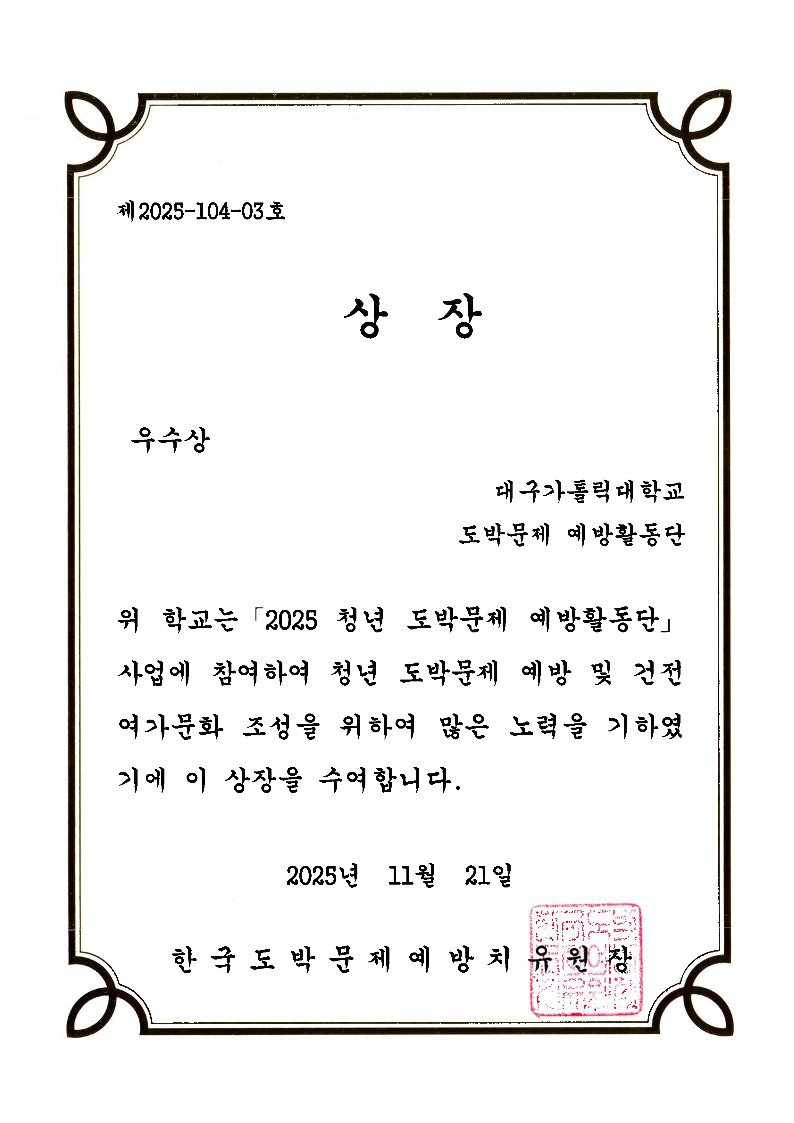 제2025-104-03호
상 장
우수상
대구가톨릭대학교
도박문제 예방활동단
위 학교는「2025 청년 도박문제 예방활동단」
사업에 참여하여 청년 도박문제 예방 및 건전
여가문화 조성을 위하여 많은 노력을 기하였
기에 이 상장을 수여합니다.
2025년 11월 21일
한국도박문제예방치유원장